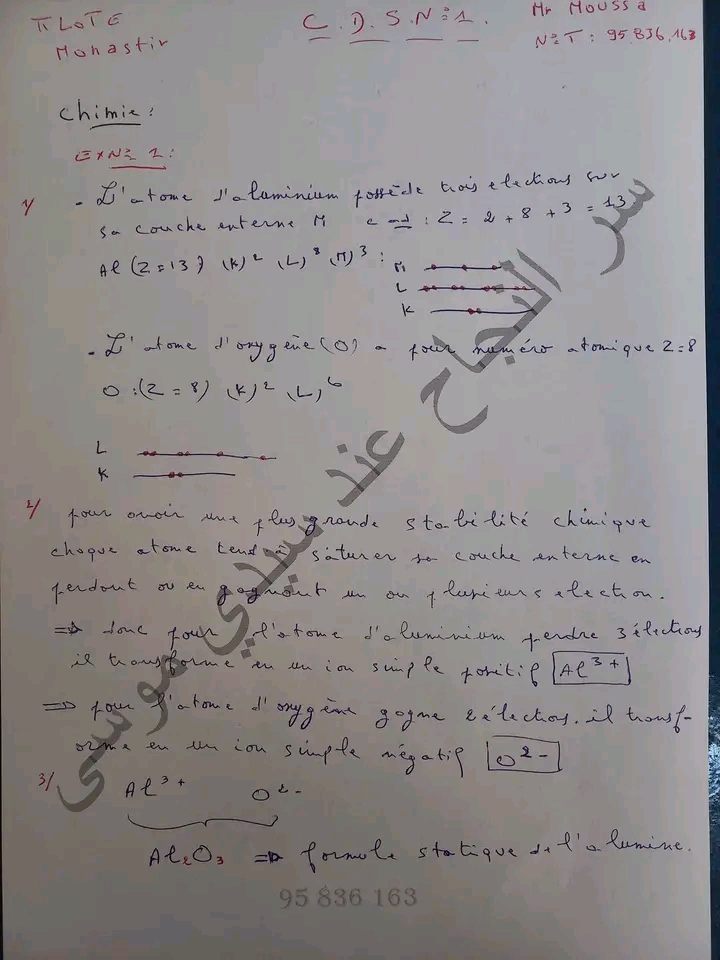 PILOTE
Monastir
C.D.S.N°1.
Mr Moussa
N°T : 95.836.163
Chimie :
EXN° 1 :
1/ - L'atome d'aluminium possède trois elections sur
sa couche enterne M c ad : Z = 2 + 8 + 3 = 13
Al (Z = 13) (K)² (L)⁸ (M)³ :
M
L
K
- L'atome d'oxygène (O) a pour numéro atomique Z=8
O : (Z = 8) (K)² (L)⁶
L
K
2/ pour avoir une plus grande stabilité chimique
chaque atome tend à saturer sa couche enterne en
perdant ou en gagnant un ou plusieurs election.
⇒ donc pour l'atome d'aluminium perdre 3 élections
il transforme en un ion simple positif Al³⁺
⇒ pour l'atome d'oxygène gagne 2 élections. il transf-
orme en un ion simple négatif O²⁻
3/ Al³⁺ O²⁻
Al₂O₃ ⇒ formule statique de l'alumine.
سر النجاح عند سيدي موسى
95 836 163